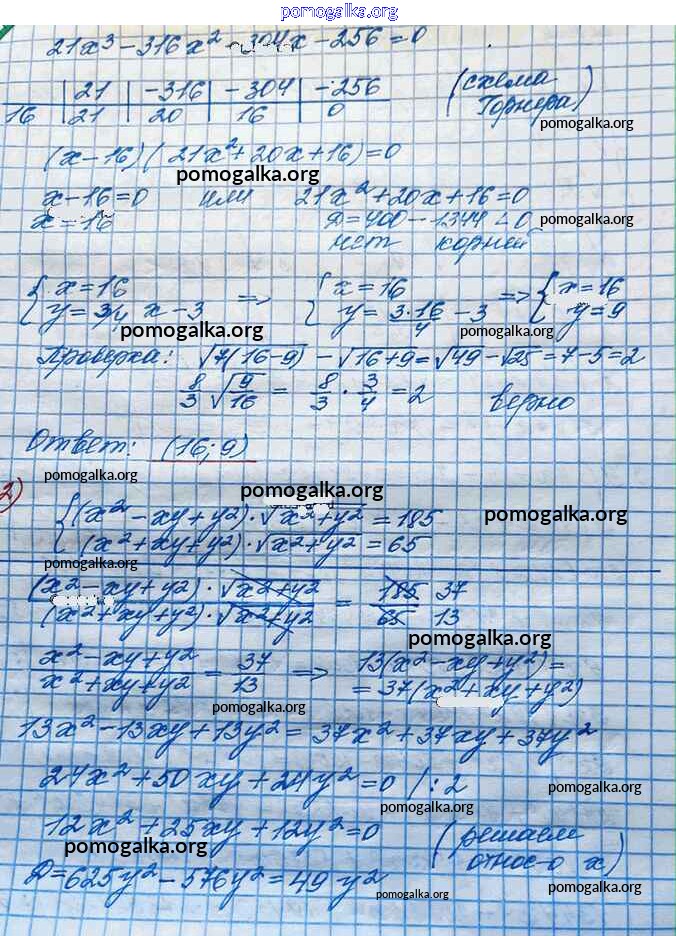 pomogalka.org
21x³ - 316x² - 304x - 256 = 0
21 | -316 | -304 | -256 (схема
16 | 21 | 20 | 16 | 0 Горнера)
pomogalka.org
(x - 16)(21x² + 20x + 16) = 0
pomogalka.org
x - 16 = 0 или 21x² + 20x + 16 = 0
x = 16 D = 400 - 1344 < 0 pomogalka.org
нет корней
{ x = 16 => { x = 16 => { x = 16
y = 3/4 x - 3 y = 3·16/4 - 3 y = 9
pomogalka.org pomogalka.org
Проверка: √7(16-9) - √16+9 = √49 - √25 = 7 - 5 = 2
8/3 √9/16 = 8/3 · 3/4 = 2 верно
Ответ: (16; 9)
pomogalka.org
pomogalka.org
2) { (x² - xy + y2) · √x2+y2 = 185 pomogalka.org
(x²+xy+y2) · √x2+y2 = 65
pomogalka.org
(x²-xy+y2) · √x2+y2 / (x²+xy+y2) · √x2+y2 = 185 37 / 65 13
pomogalka.org
x²-xy+y2 / x²+xy+y2 = 37/13 => 13(x²-xy+y²) =
= 37(x²+xy+y²)
pomogalka.org
13x² - 13xy + 13y² = 37x² + 37xy + 37y²
pomogalka.org
24x² + 50xy + 24y² = 0 /:2
pomogalka.org
pomogalka.org
12x² + 25xy + 12y² = 0 (решаем
pomogalka.org относ-о x)
D = 625y² - 576y² = 49y²
pomogalka.org pomogalka.org